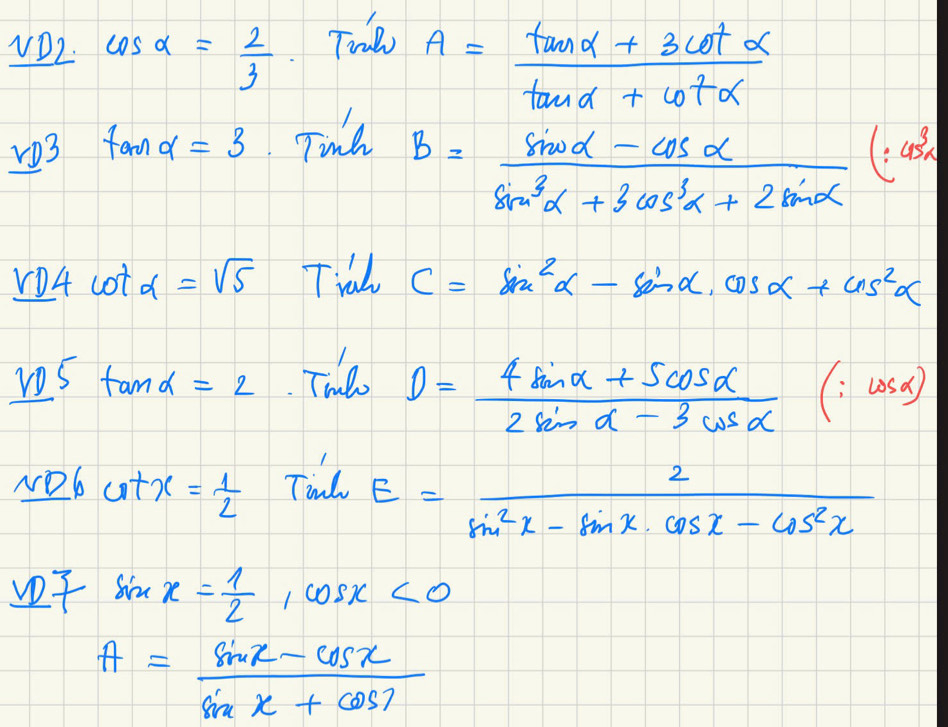 VD2. cos α = 2/3. Tính A = (tan α + 3 cot α)/(tan α + cot α)
VD3 tan α = 3. Tính B = (sin α - cos α)/(sin³α + 3 cos³α + 2 sin α) (: cos³α
VD4 cot α = √5 Tính C = sin²α - sin α. cos α + cos²α
VD5 tan α = 2. Tính D = (4 sin α + 5 cos α)/(2 sin α - 3 cos α) (: cos α)
VD6 cot x = 1/2 Tính E = 2/(sin²x - sin x. cos x - cos²x)
VD7 sin x = 1/2, cos x < 0
A = (sin x - cos x)/(sin x + cos x)